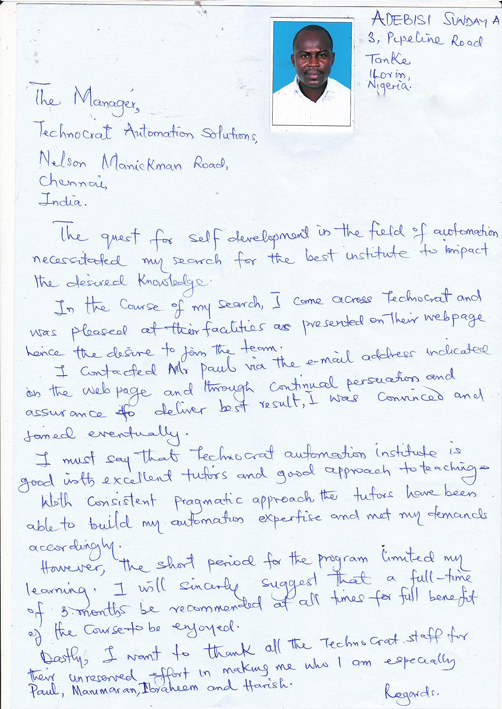 ADEBISI SUNDAY A
3, Pipeline Road
Tanke
Ilorin,
Nigeria.
The Manager,
Technocrat Automation Solutions,
Nelson Manickman Road,
Chennai,
India.
The quest for self development in the field of automation
necessitated my search for the best institute to impact
the desired knowledge.
In the Course of my search, I come across Technocrat and
was pleased at their facilities as presented on their webpage
hence the desire to join the team.
I contacted Mr Paul via the e-mail address indicated
on the web page and through continual persuation and
assurance to deliver best result, I was convinced and
joined eventually.
I must say that Technocrat automation institute is
good with excellent tutors and good approach to teaching
With consistent pragmatic approach the tutors have been
able to build my automation expertise and met my demands
accordingly.
However, the short period for the program limited my
learning. I will sincerly suggest that a full-time
of 3 months be recommended at all times for full benefit
of the Course to be enjoyed.
Lastly, I want to thank all the Technocrat staff for
their unreserved effort in making me who I am especially
Paul, Manimaran, Ibraheem and Harish.
Regards.